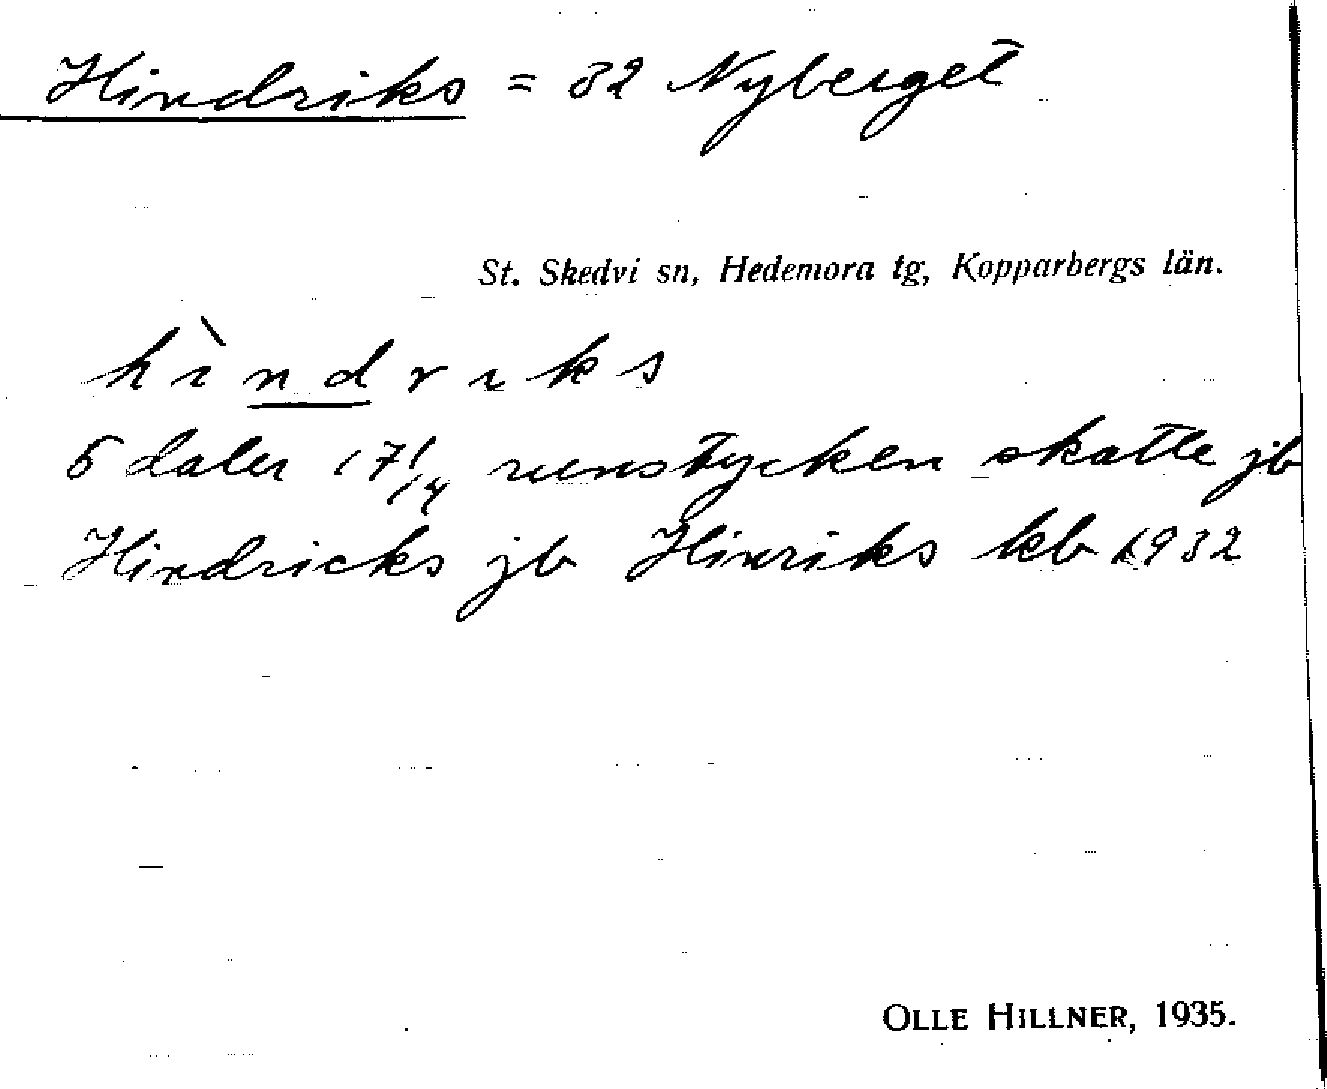 Hindriks = 32 Nyberget
St. Skedvi sn, Hedemora tg, Kopparbergs län.
hìndrıks
5 daler 17 1/4 runstycken skatte jb
Hindricks jb Hinriks kb 1932
OLLE HILLNER, 1935.